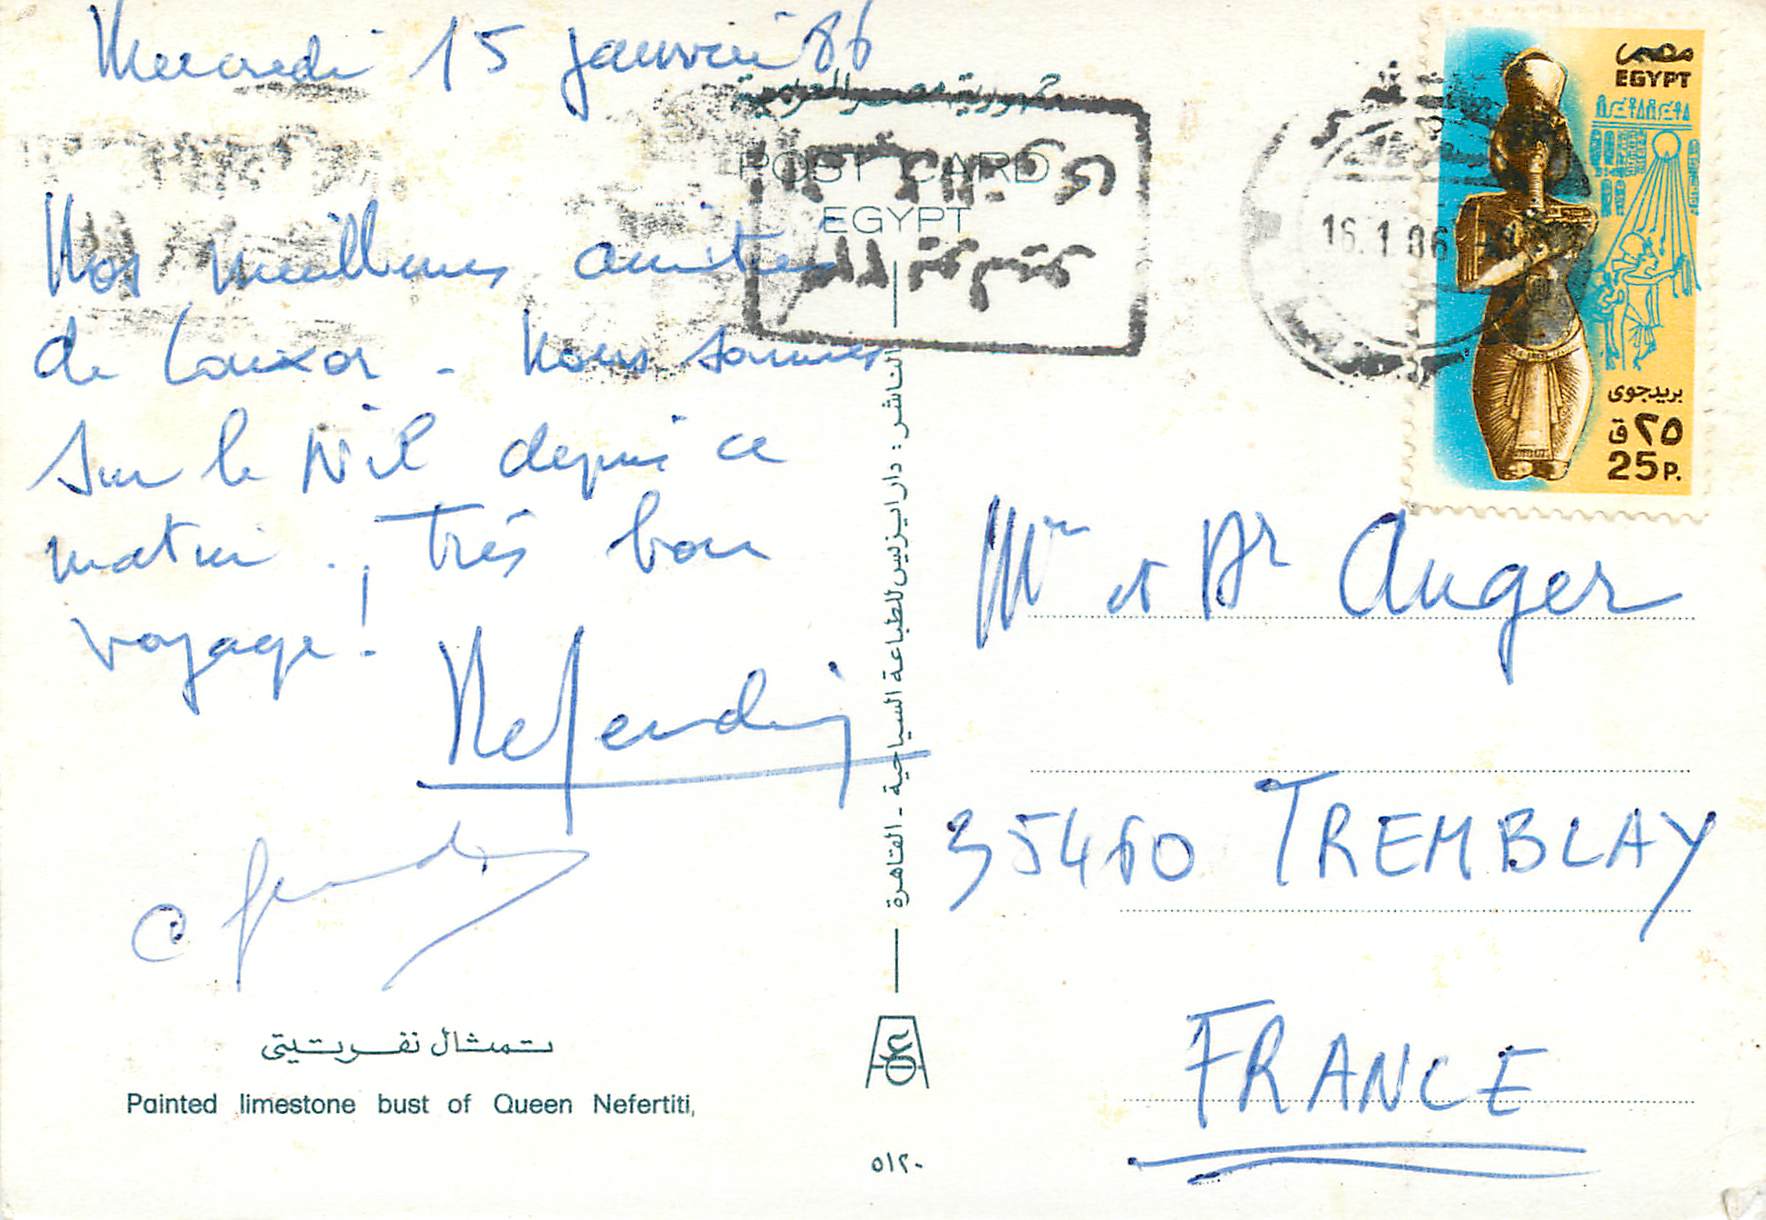 Mercredi 15 janvier 86
Nos meilleures amitiés
de Louxor - Nous sommes
sur le Nil depuis ce
matin. Très bon
voyage!
جمهورية مصر العربية
POST CARD
EGYPT
الناشر : دار ايزيس للطباعة السياحية - القاهرة
تمثال نفرتيتى
Painted limestone bust of Queen Nefertiti,
٥١٢٠
16.1.86
مصر
EGYPT
بريد جوى
٢٥ ق
25 P.
Mme et Dr Auger
35460 TREMBLAY
FRANCE